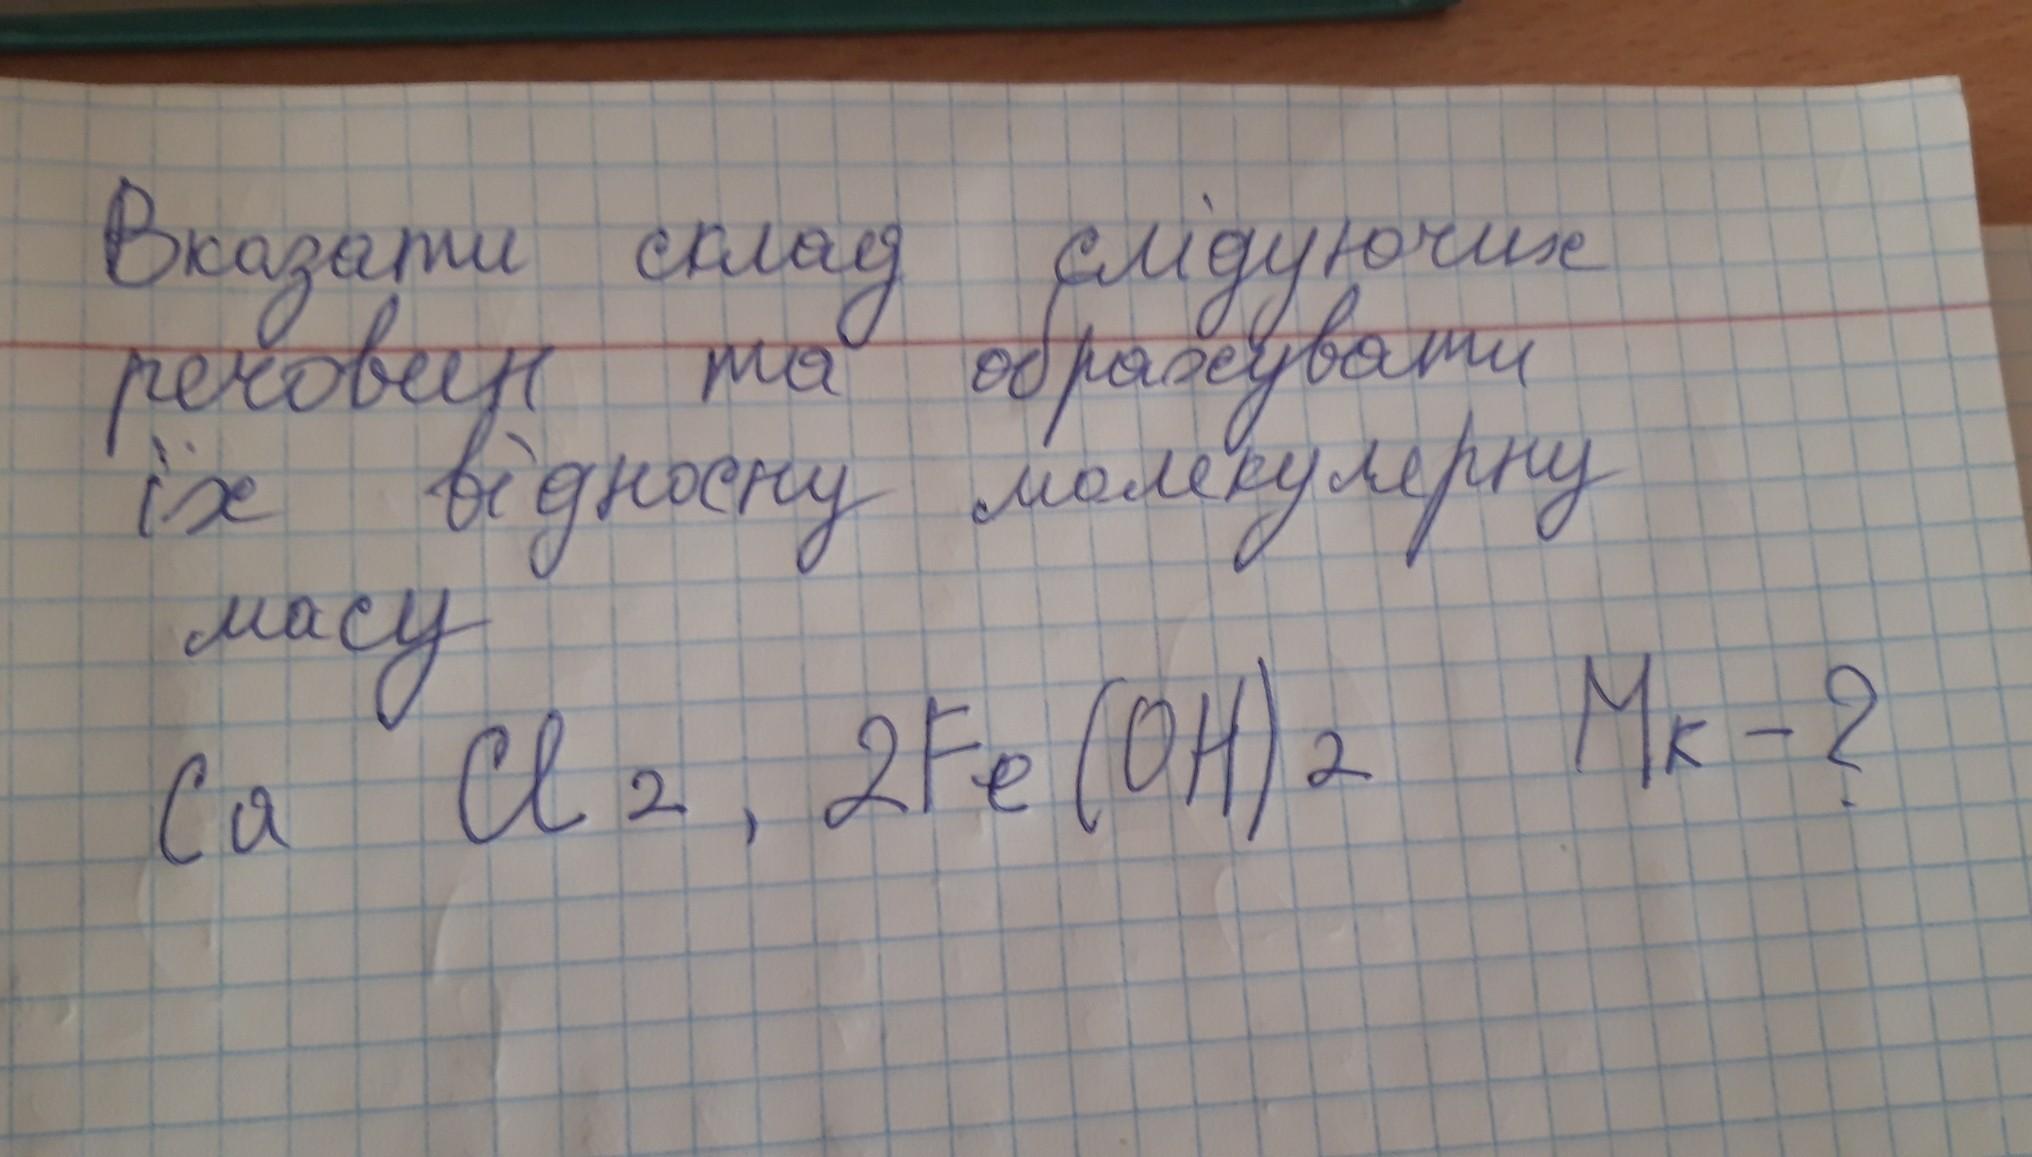 Вказати склад слідуючих
речовин та обрахувати
їх відносну молекулярну
масу
Ca Cl2, 2Fe(OH)2 Мк-?